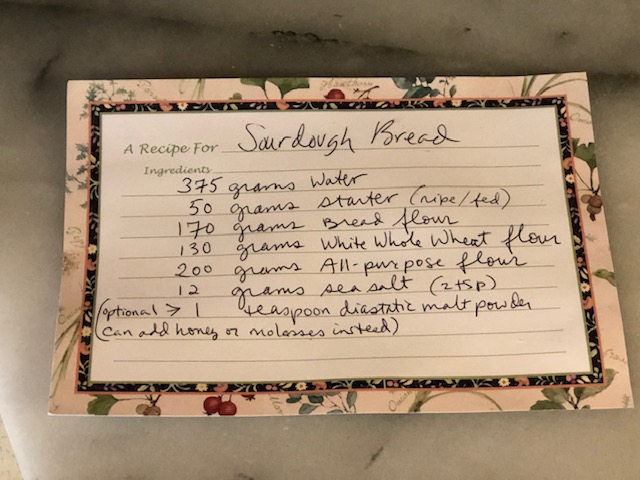 A Recipe For Sourdough Bread
Ingredients
375 grams water
50 grams starter (ripe/fed)
170 grams Bread flour
130 grams White Whole Wheat flour
200 grams All-purpose flour
12 grams sea salt (2 tsp)
(optional > 1 teaspoon diastatic malt powder
can add honey or molasses instead)